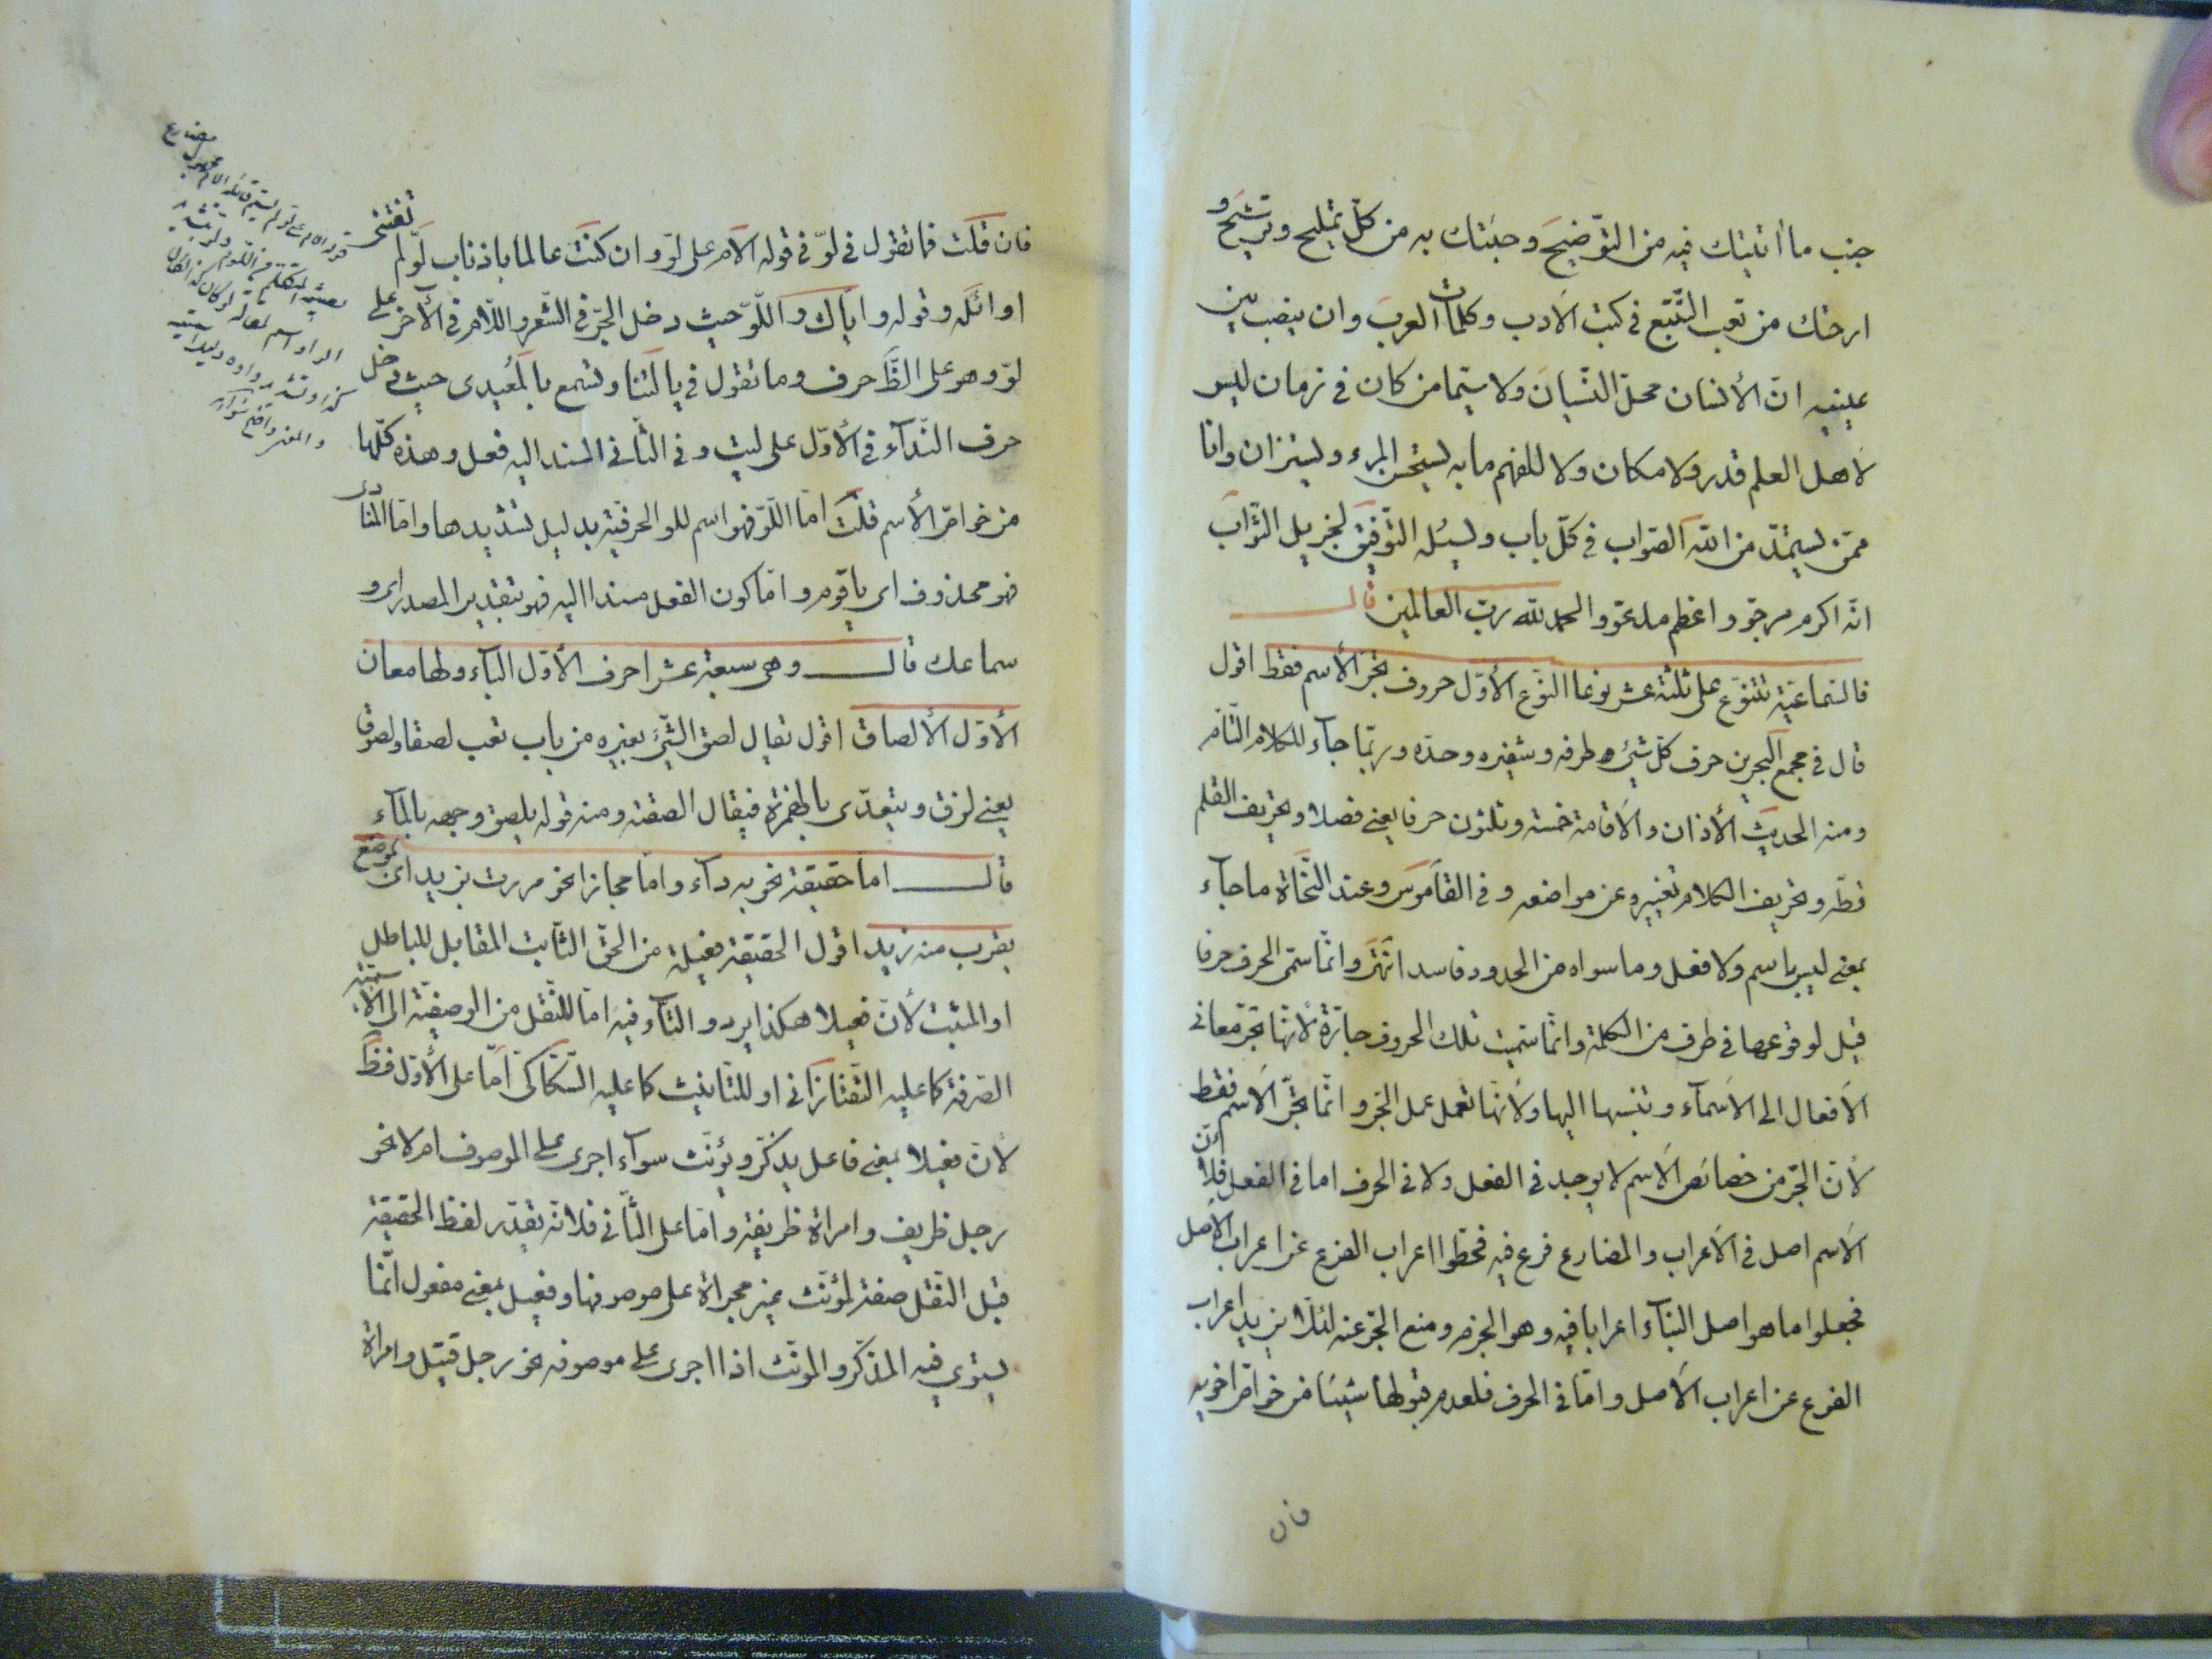 جنب ما أتيتك فيه من التوضيح وجئتك به من كل تمليح وترشيح و
ارحتك من تعب التتبع في كتب الأدب وكلمات العرب وان ينصب بين
عينيه انّ الأنسان محلّ النسيان ولا سيّما من كان في زمان ليس
لاهل العلم قدر ولا مكان ولا للفهم ما به يستحسن المرء ويزان وانا
ممّن يستمدّ من اللّه الصّواب في كلّ باب ويسئله التّوفيق لجزيل الثّواب
انّه اكرم مرجوّ واعظم مدعوّ والحمد للّه ربّ العالمين قال
فالسّماعيّة تتنوّع على ثلثة عشر نوعا النّوع الأوّل حروف تجرّ الأسم فقط اقول
قال في مجمع البحرين حرف كلّ شيء طرفه وشفيره وحدّه وربّما جآء للكلام التّامّ
ومنه الحديث الأذان والاقامة خمسة وثلثون حرفا يعني فصلا وتحريف القلم
قطّه وتحريف الكلام تغييره عن مواضعه وفي القاموس وعند النّحاة ما جآء
بمعنى ليس باسم ولا فعل وما سواه من الحدود فاسد انتهى وانّما سمّي الحرف حرفا
قيل لوقوعها في طرف من الكلمة وانّما سمّيت تلك الحروف جارّة لأنّها تجرّ معاني
الأفعال الى الأسمآء وتنسبها اليها ولأنّها تعمل عمل الجرّ وانّما تجرّ الاسم فقط
لأنّ الجرّ من خصائص الاسم لا يوجد في الفعل ولا في الحرف اما في الفعل فلأنّ
الاسم اصل في الأعراب والمضارع فرع فيه فحطّوا اعراب الفرع عن اعراب الأصل
فجعلوا ما هو اصل البنآء اعرابا فيه وهو الجزم ومنع الجرّ عنه لئلّا يزيد اعراب
الفرع عن اعراب الأصل وامّا في الحرف فلعدم قبولها شيئا من خواصّ اخويه
فان
فان قلت فما تقول في لوّ في قوله الام على لوّ وان كنت عالما باذناب لوّ لم تفتني
اوائله وقوله واياك واللّوّ حيث دخل الجرّ في الشّعر واللّام في الأخر على
لوّ وهو على الظّ حرف وما تقول في يا ليتنا وتسمع بالمعيدى حيث دخل
حرف النّدآء في الأوّل على ليت وفي الثّاني المسند اليه فعل وهذه كلّها
من خواصّ الأسم قلت امّا اللّوّ فهو اسم للو الحرفيّة بدليل تشديدها وامّا المنادى
فهو محذوف اى يا قوم وامّا كون الفعل مسندا اليه فهو بتقدير المصدر اى و
سماعك قال وهى سبعة عشر احرف الأوّل البآء ولها معان
الأوّل الألصاق اقول يقال لصق الشّيء بغيره من باب تعب لصقا ولصوقا
يعني لزق ويتعدّى بالهمزة فيقال الصقته ومنه قوله يلصق وجهه بالمآء
قال امّا حقيقة نحو به دآء وامّا مجازا نحو مررت بزيد اى بموضع
يقرب منه زيد اقول الحقيقة فعيلة من الحقّ الثّابت المقابل للباطل
او المثبت لأنّ فعيلا هكذا يرد والتّآء فيه امّا للنّقل من الوصفيّة الى الأسميّة
الصّرفة كما عليه التّفتازاني او للتّأنيث كما عليه السّكّاكي امّا على الأوّل فظ
لأنّ فعيلا بمعنى فاعل يذكّر ويؤنّث سوآء اجرى على الموصوف ام لا نحو
رجل ظريف وامرأة ظريفة وامّا على الثّاني فلانّه يقدّر لفظ الحقيقة
قبل النّقل صفة لمؤنّث غير مجراة على موصوفها وفعيل بمعنى مفعول انّما
يستوي فيه المذكّر والمؤنّث اذا اجرى على موصوفه نحو رجل قتيل وامرأة